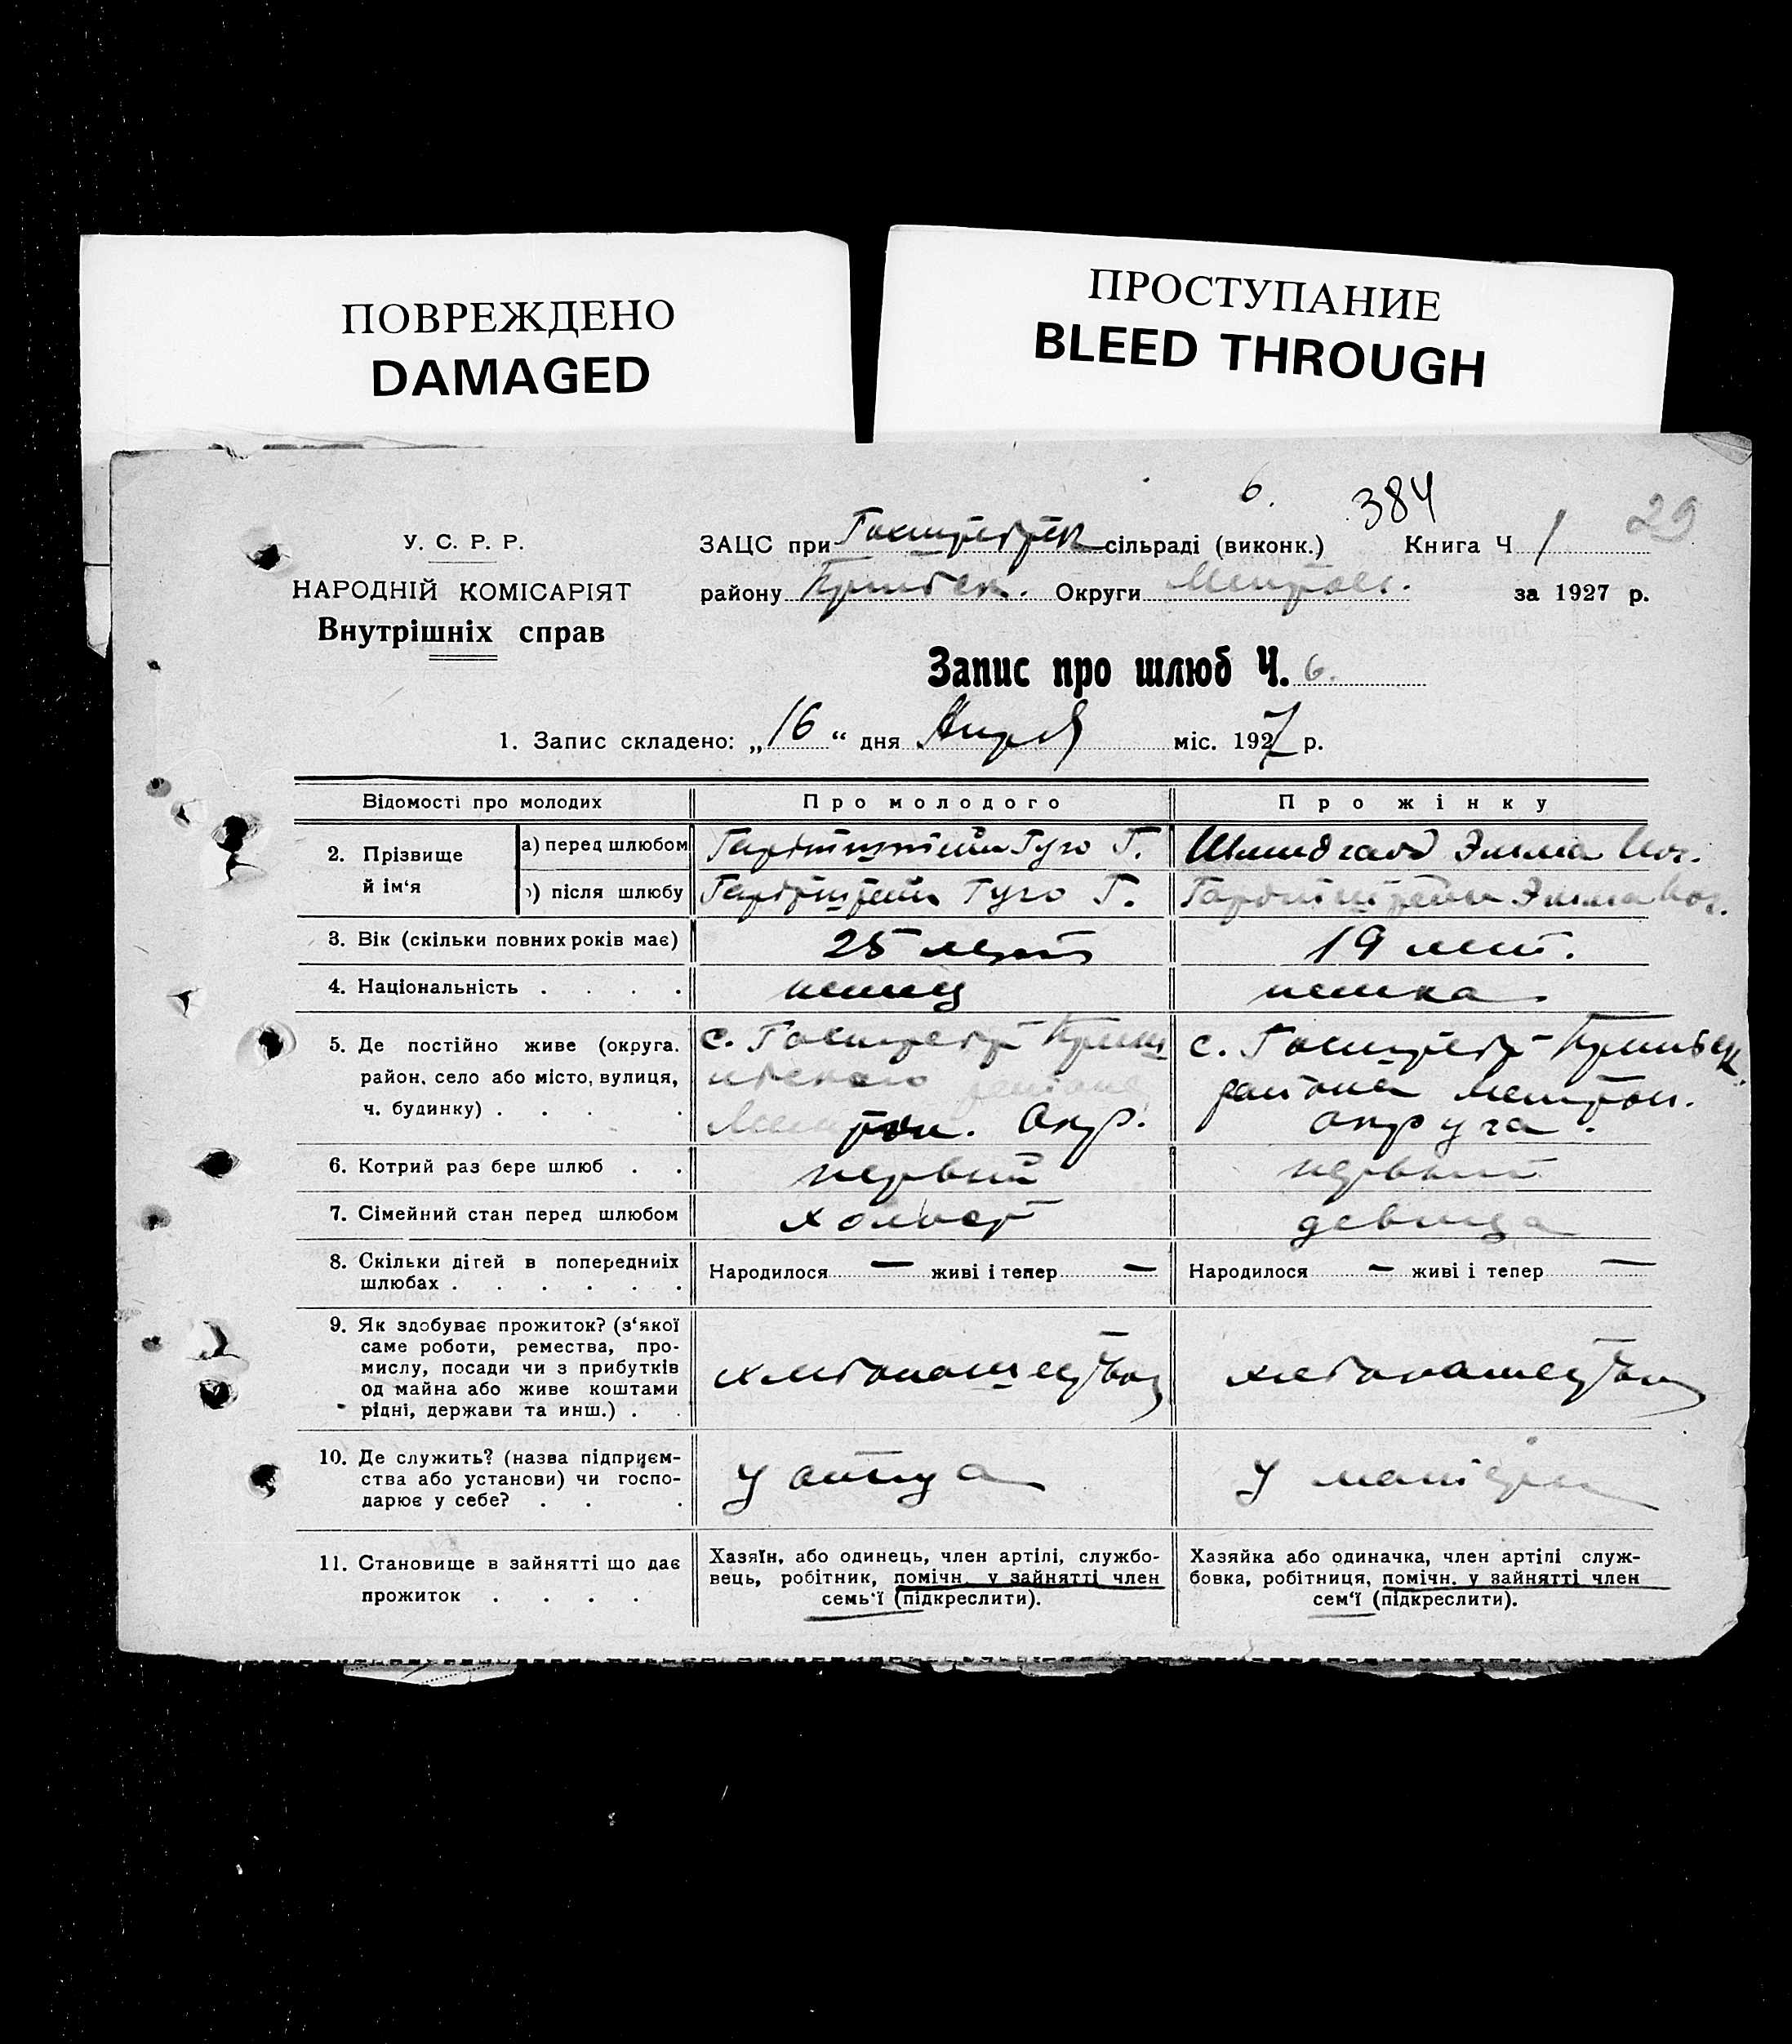 ПОВРЕЖДЕНО
DAMAGED
ПРОСТУПАНИЕ
BLEED THROUGH
6. 384 29
У. С. Р. Р.
НАРОДНІЙ КОМІСАРІЯТ
Внутрішніх справ
ЗАЦС при сільраді (виконк.) Книга Ч 1
району Пришибск. Округи Мелитоп. за 1927 р.
Запис про шлюб Ч. 6.
1. Запис складено: „16“ дня Апреля міс. 1927 р.
Відомості про молодих Про молодого Про жінку
2. Прізвище й ім‘я
а) перед шлюбом Гуго Г. Эмма
б) після шлюбу Гуго Г. Эмма
3. Вік (скільки повних років має) 25 лет 19 лет.
4. Національність . . . . немец немка
5. Де постійно живе (округа,
район, село або місто, вулиця,
ч. будинку) . . .
с. Пришиб
ибского района
Мелитоп. Окр.
с. Пришибск.
района Мелитоп.
округа.
6. Котрий раз бере шлюб . . первый первый
7. Сімейний стан перед шлюбом холост девица
8. Скільки дітей в попередніх
шлюбах . . . . . .
Народилося — живі і тепер —
Народилося — живі і тепер —
9. Як здобуває прожиток? (з‘якої
саме роботи, ремества, про-
мислу, посади чи з прибутків
од майна або живе коштами
рідні, держави та инш.) .
хлебопашеством
хлебопашеством
10. Де служить? (назва підприєм-
ства або установи) чи госпо-
дарює у себе? . . .
у отца
у матери
11. Становище в зайнятті що дає
прожиток . . . .
Хазяїн, або одинець, член артілі, службо-
вець, робітник, помічн. у зайнятті член
семь‘ї (підкреслити).
Хазяйка або одиначка, член артілі служ-
бовка, робітниця, помічн. у зайнятті член
сем‘ї (підкреслити).